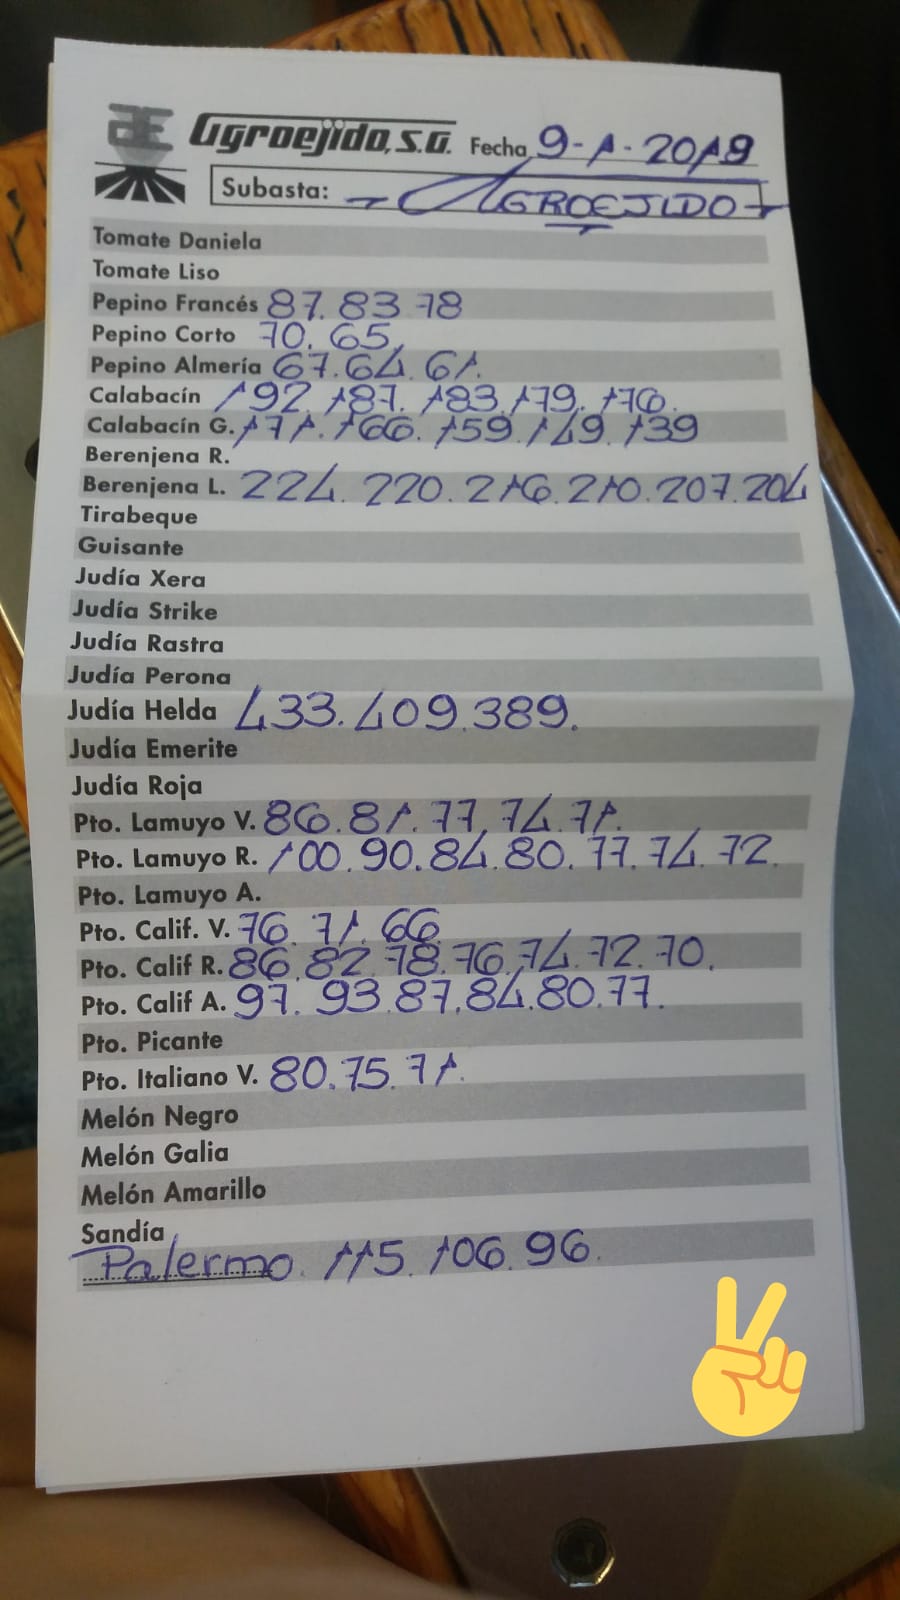 Agroejido, S.A. Fecha 9-1-2019
Subasta: - AGROEJIDO -
Tomate Daniela
Tomate Liso
Pepino Francés 87. 83 78
Pepino Corto 70. 65.
Pepino Almería 67. 64. 61.
Calabacín 192. 187. 183. 179. 176.
Calabacín G. 171. 166. 159. 149. 139
Berenjena R.
Berenjena L. 224. 220. 216. 210. 207. 204
Tirabeque
Guisante
Judía Xera
Judía Strike
Judía Rastra
Judía Perona
Judía Helda 433. 409. 389.
Judía Emerite
Judía Roja
Pto. Lamuyo V. 86. 81. 77. 74. 71.
Pto. Lamuyo R. 100. 90. 84. 80. 77. 74. 72.
Pto. Lamuyo A.
Pto. Calif. V. 76. 71. 66
Pto. Calif R. 86. 82. 78. 76. 74. 72. 70.
Pto. Calif A. 97. 93. 87. 84. 80. 77.
Pto. Picante
Pto. Italiano V. 80. 75. 71.
Melón Negro
Melón Galia
Melón Amarillo
Sandía
Palermo. 115. 106. 96.